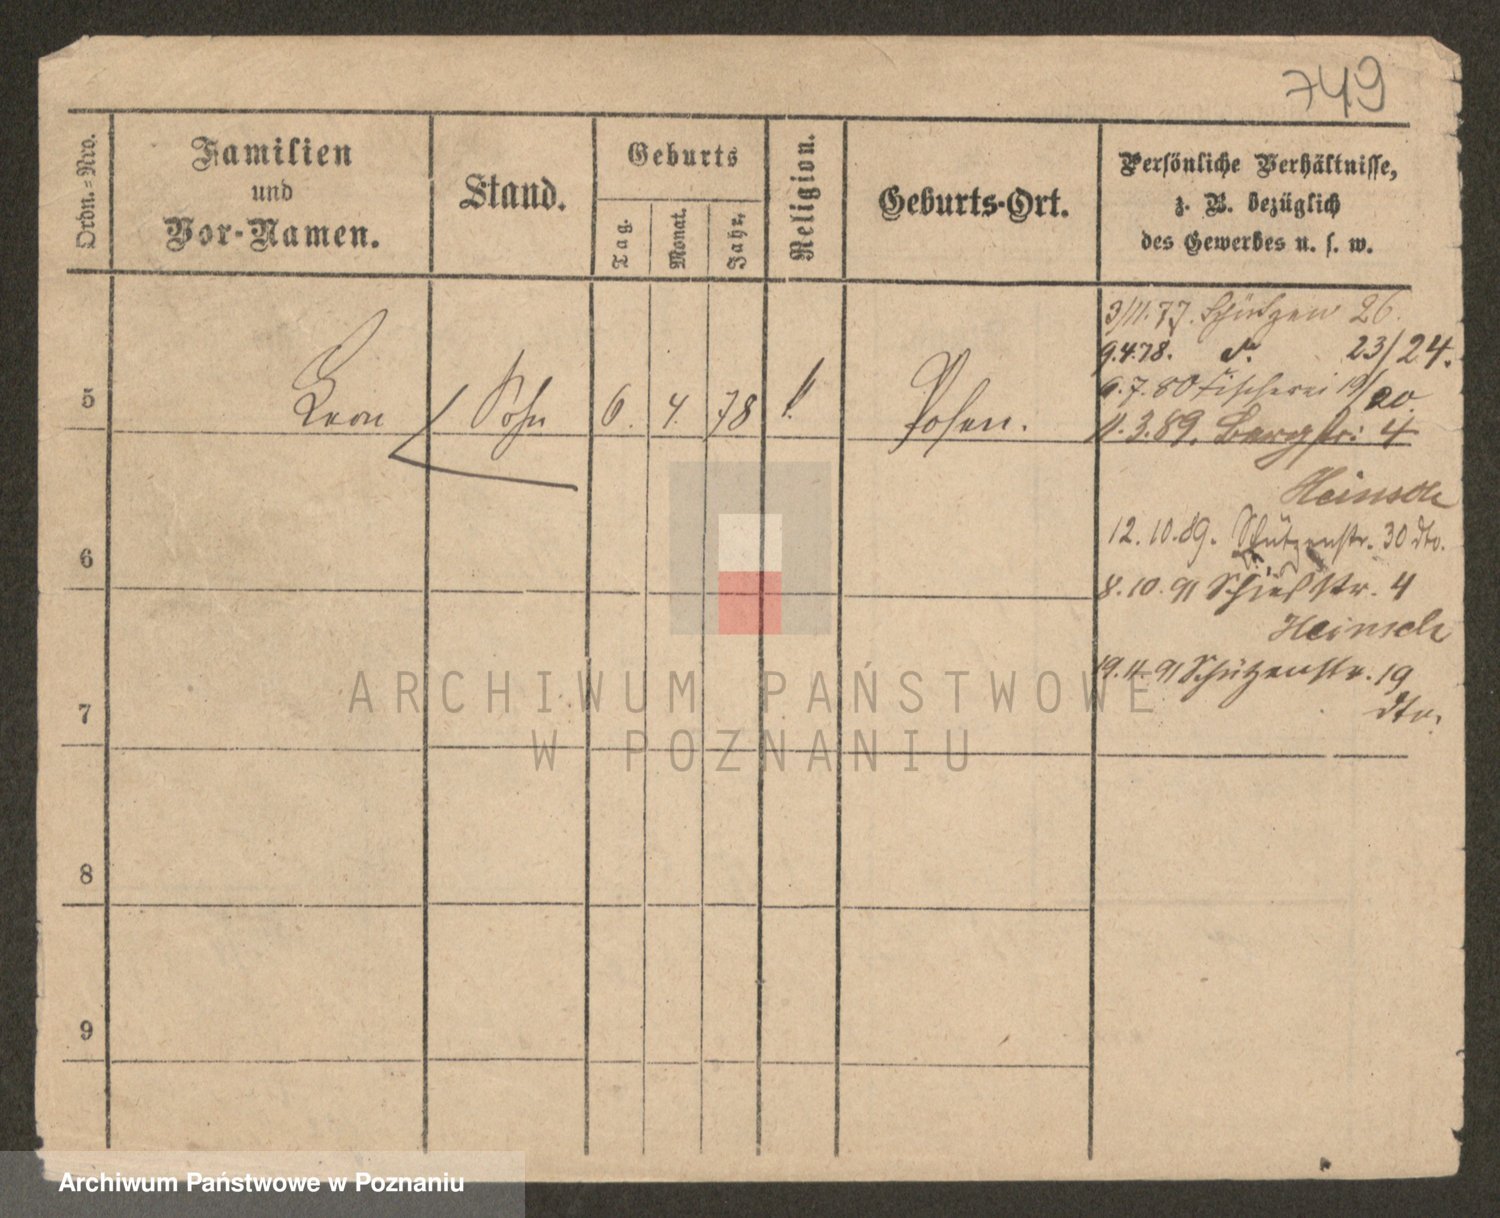 749
Ordn.=Nro.
Familien
und
Vor-Namen.
Stand.
Geburts
Tag.
Monat.
Jahr.
Religion.
Geburts-Ort.
Persönliche Verhältnisse,
z. B. bezüglich
des Gewerbes u. s. w.
3/11.77. Schützen 26.
9.4.78. 23/24.
6.7.80 Fischerei 19/20.
5 Leon Sohn 6. 4. 78 Posen.
11.3.89. Bergstr. 4
Heinsch
6
12.10.89. Schützenstr. 30 dto.
8.10.91 Schießstr. 4
Heinsch
19.11.91 Schützenstr. 19
7
dto.
8
9
ARCHIWUM PAŃSTWOWE
W POZNANIU
Archiwum Państwowe w Poznaniu